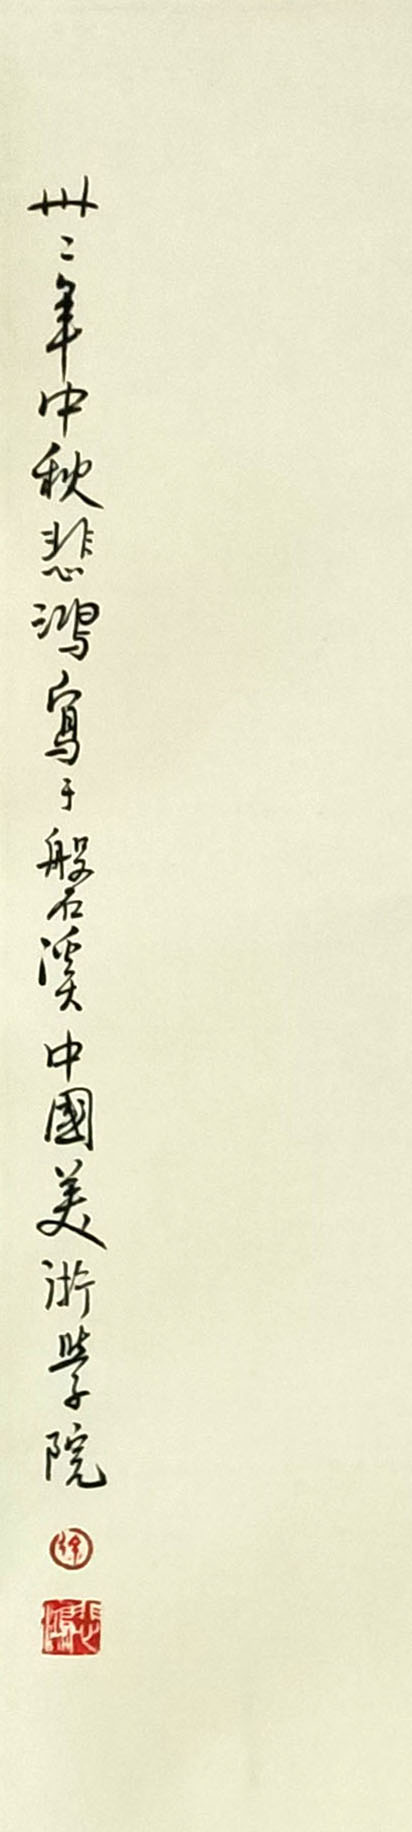 卅二年中秋悲鴻寫于磐石溪中國美術學院
徐
悲鴻